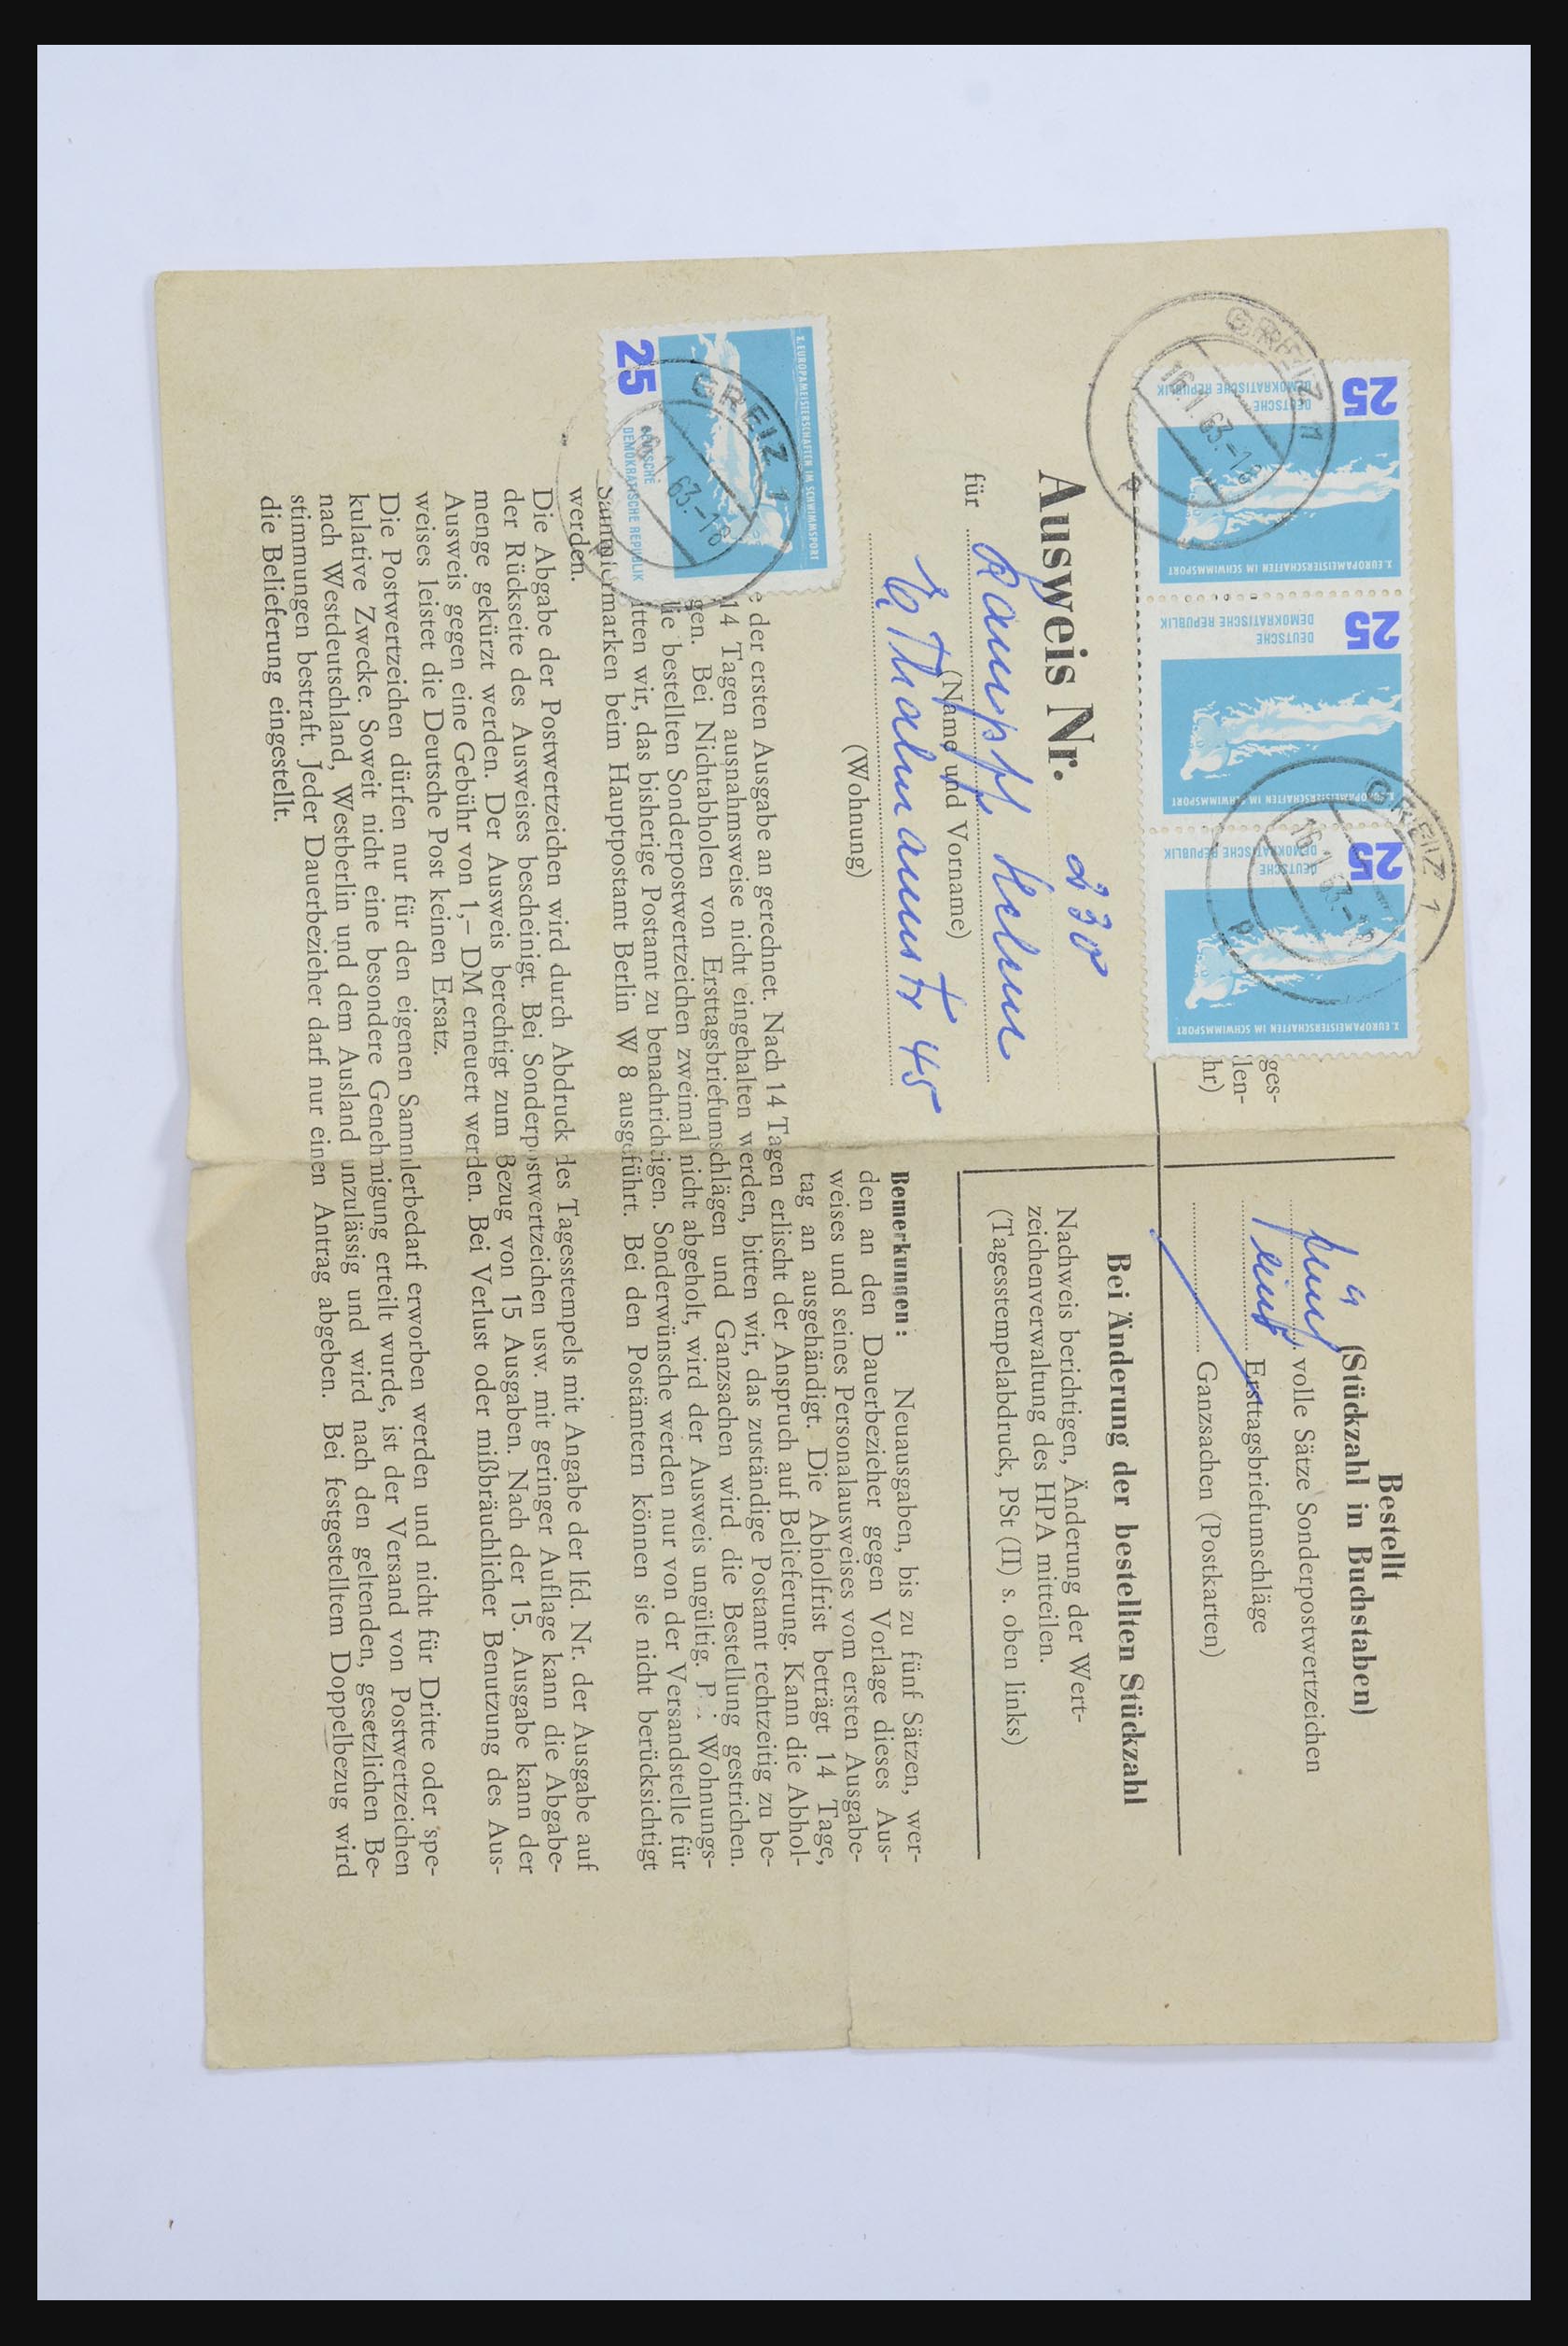 25
DEUTSCHE
DEMOKRATISCHE REPUBLIK
X. EUROPAMEISTERSCHAFTEN IM SCHWIMMSPORT
25
DEUTSCHE
DEMOKRATISCHE REPUBLIK
X. EUROPAMEISTERSCHAFTEN IM SCHWIMMSPORT
25
DEUTSCHE
DEMOKRATISCHE REPUBLIK
X. EUROPAMEISTERSCHAFTEN IM SCHWIMMSPORT
GREIZ 1
16.1.63.-18
p
GREIZ 1
16.1.63.-18
p
ges-
len-
hr)
Ausweis Nr. 230
für
(Name und Vorname)
45
(Wohnung)
X. EUROPAMEISTERSCHAFTEN IM SCHWIMMSPORT
25
DEUTSCHE
DEMOKRATISCHE REPUBLIK
GREIZ 1
16.1.63.-18
Bestellt
(Stückzahl in Buchstaben)
fünf volle Sätze Sonderpostwertzeichen
eins Ersttagsbriefumschläge
Ganzsachen (Postkarten)
Bei Änderung der bestellten Stückzahl
Nachweis berichtigen, Änderung der Wert-
zeichenverwaltung des HPA mitteilen.
(Tagesstempelabdruck, PSt (II) s. oben links)
Bemerkungen: Neuausgaben, bis zu fünf Sätzen, wer-
den an den Dauerbezieher gegen Vorlage dieses Aus-
weises und seines Personalausweises vom ersten Ausgabe-
tag an ausgehändigt. Die Abholfrist beträgt 14 Tage,
e der ersten Ausgabe an gerechnet. Nach 14 Tagen erlischt der Anspruch auf Belieferung. Kann die Abhol-
14 Tagen ausnahmsweise nicht eingehalten werden, bitten wir, das zuständige Postamt rechtzeitig zu be-
gen. Bei Nichtabholen von Ersttagsbriefumschlägen und Ganzsachen wird die Bestellung gestrichen.
ie bestellten Sonderpostwertzeichen zweimal nicht abgeholt, wird der Ausweis ungültig. Bei Wohnungs-
itten wir, das bisherige Postamt zu benachrichtigen. Sonderwünsche werden nur von der Versandstelle für
Sammlermarken beim Hauptpostamt Berlin W 8 ausgeführt. Bei den Postämtern können sie nicht berücksichtigt
werden.
Die Abgabe der Postwertzeichen wird durch Abdruck des Tagesstempels mit Angabe der lfd. Nr. der Ausgabe auf
der Rückseite des Ausweises bescheinigt. Bei Sonderpostwertzeichen usw. mit geringer Auflage kann die Abgabe-
menge gekürzt werden. Der Ausweis berechtigt zum Bezug von 15 Ausgaben. Nach der 15. Ausgabe kann der
Ausweis gegen eine Gebühr von 1,– DM erneuert werden. Bei Verlust oder mißbräuchlicher Benutzung des Aus-
weises leistet die Deutsche Post keinen Ersatz.
Die Postwertzeichen dürfen nur für den eigenen Sammlerbedarf erworben werden und nicht für Dritte oder spe-
kulative Zwecke. Soweit nicht eine besondere Genehmigung erteilt wurde, ist der Versand von Postwertzeichen
nach Westdeutschland, Westberlin und dem Ausland unzulässig und wird nach den geltenden, gesetzlichen Be-
stimmungen bestraft. Jeder Dauerbezieher darf nur einen Antrag abgeben. Bei festgestelltem Doppelbezug wird
die Belieferung eingestellt.